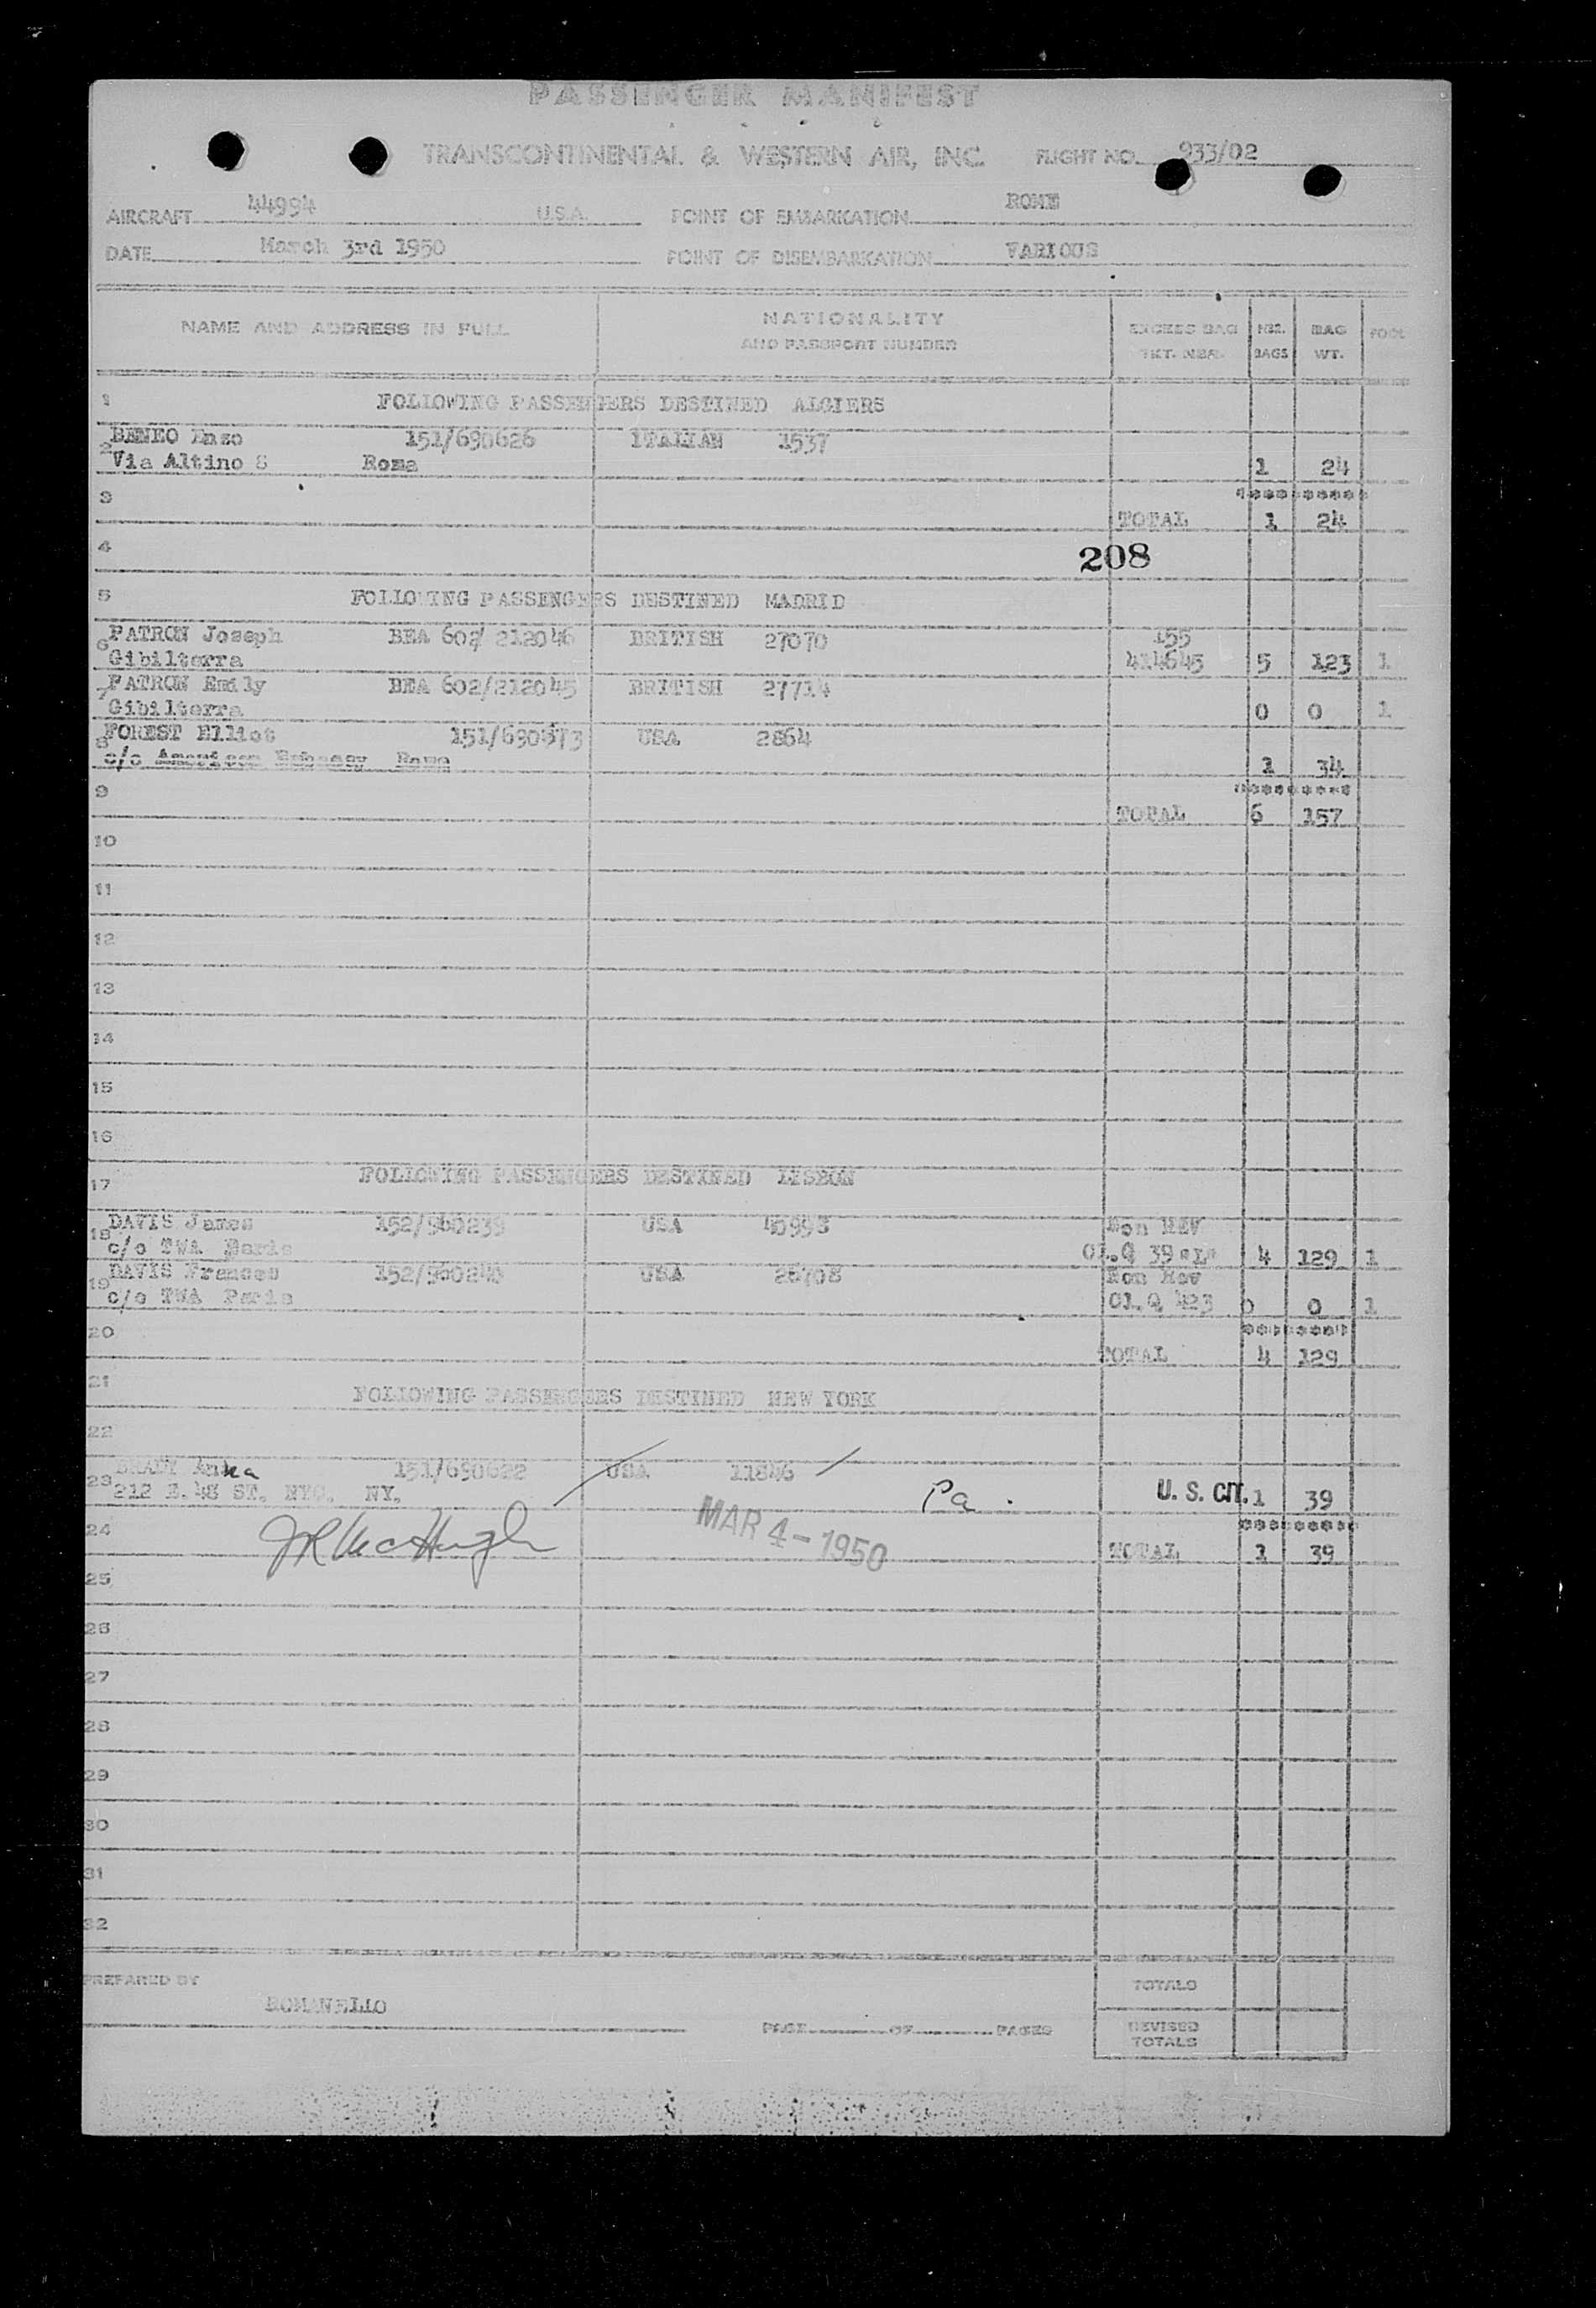 PASSENGER MANIFEST
TRANSCONTINENTAL & WESTERN AIR, INC. FLIGHT NO. 933/02
AIRCRAFT 44994 U.S.A. POINT OF EMBARKATION ROME
DATE March 3rd 1950 POINT OF DISEMBARKATION VARIOUS
NAME AND ADDRESS IN FULL NATIONALITY AND PASSPORT NUMBER EXCESS BAG TKT. NBR. NBR. BAGS BAG WT. POOL
1 FOLLOWING PASSENGERS DESTINED ALGIERS
2 Enzo 151/690626 ITALIAN 1537
Via Altino 8 Roma 1 24
3 *********
TOTAL 1 24
4 208
5 FOLLOWING PASSENGERS DESTINED MADRID
6 PATRON Joseph BEA 602/ 212046 BRITISH 27070 155
Gibilterra 414645 5 123 1
7 PATRON Emily BEA 602/212045 BRITISH 27714
Gibilterra 0 0 1
8 FOREST Elliot USA 2864
c/o American Embassy 1 34
9 *********
TOTAL 6 157
10
11
12
13
14
15
16
17 FOLLOWING PASSENGERS DESTINED LISBON
18 DAVIS James 152/960239 USA Non REV
c/o TWA Paris 4 129 1
19 DAVIS Frances USA 26708 Non Rev
c/o TWA Paris 0 0 1
20 ********
TOTAL 4 129
21 FOLLOWING PASSENGERS DESTINED NEW YORK
22
23 151/690622 USA 11846
212 E. 48 ST. NYC., NY. Pa. U. S. CIT. 1 39
24 JR McHugh MAR 4-1950 *********
TOTAL 1 39
25
26
27
28
29
30
31
32
PREPARED BY TOTALS
ROMANELLO
PAGE OF PAGES REVISED TOTALS